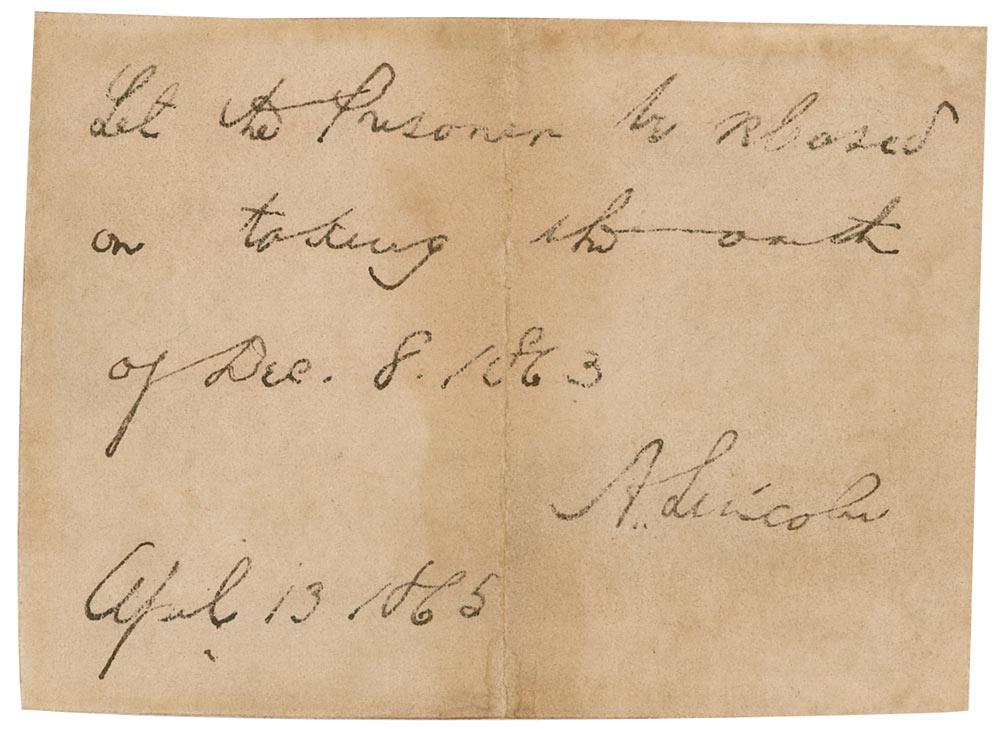 Let the Prisoner be released
on taking the oath
of Dec. 8. 1863
A. Lincoln
April 13 1865